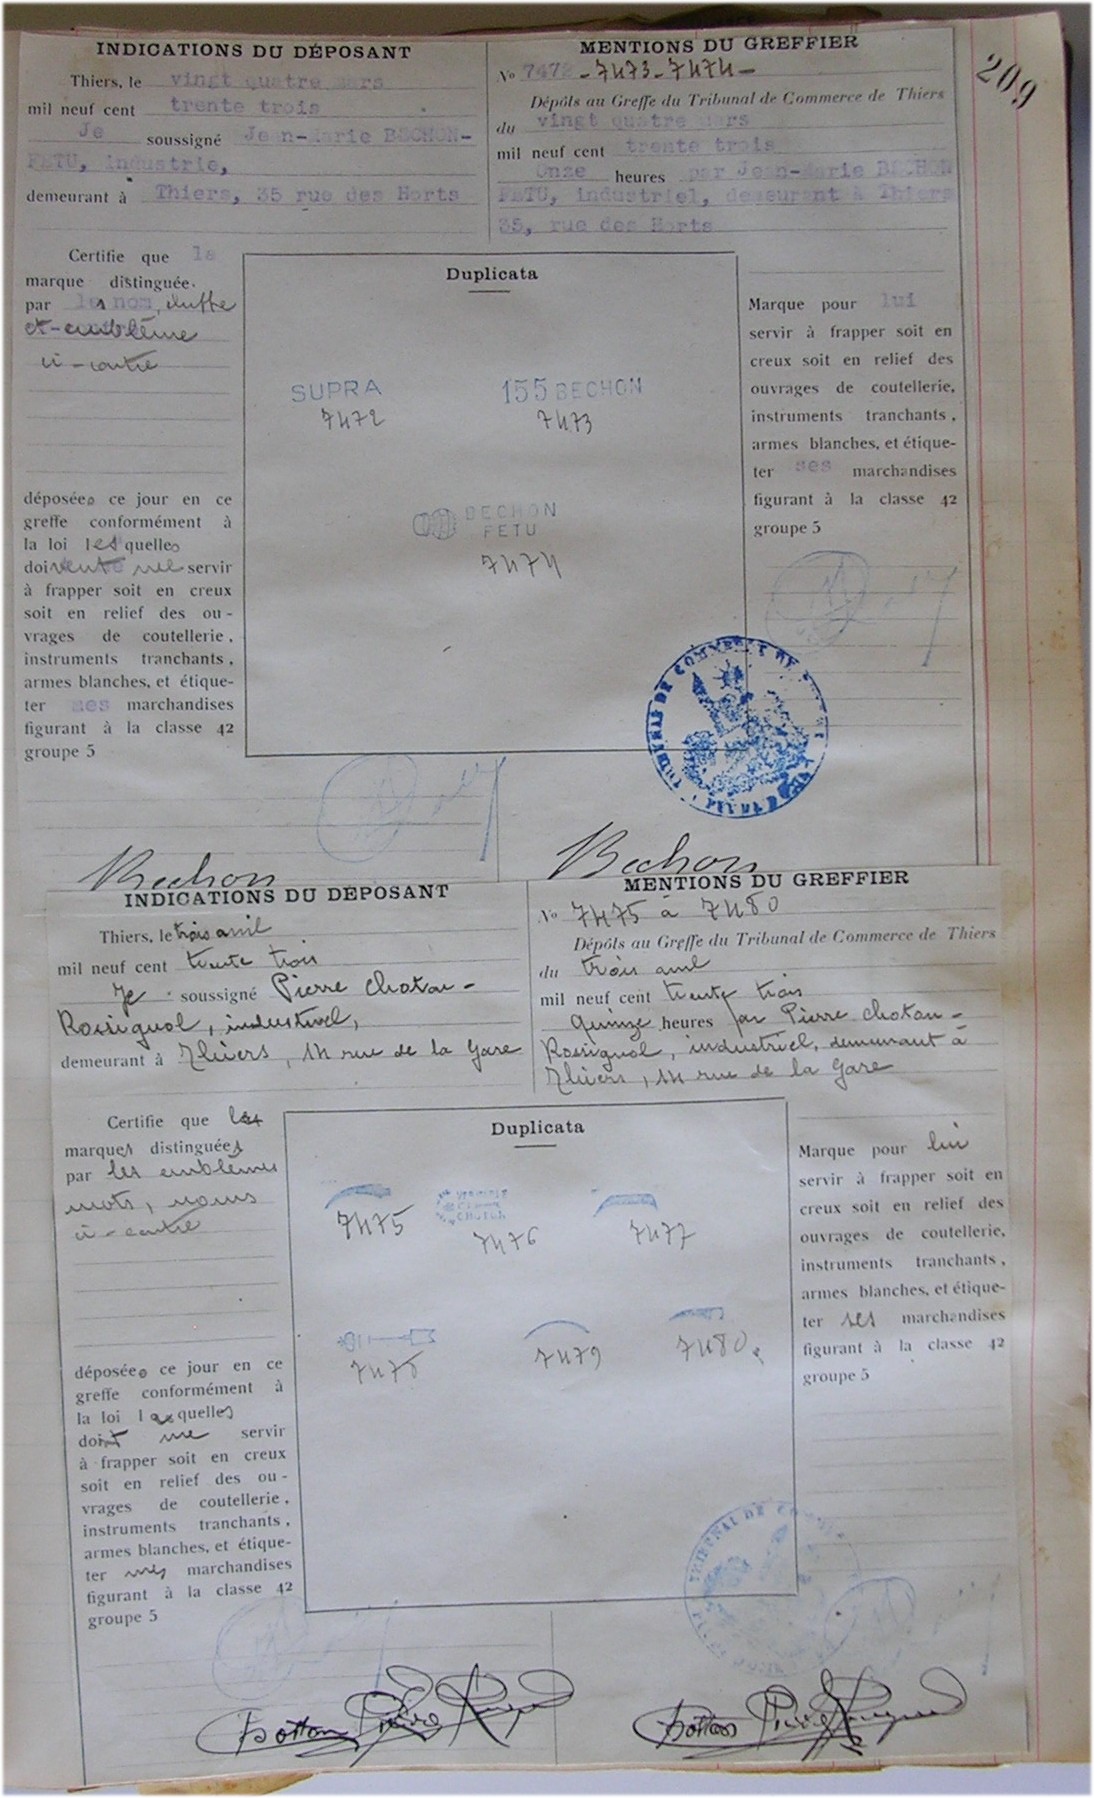 209
INDICATIONS DU DÉPOSANT
Thiers, le vingt quatre mars
mil neuf cent trente trois
Je soussigné Jean-Marie BECHON-
FETU, industrie,
demeurant à Thiers, 35 rue des Horts
MENTIONS DU GREFFIER
No 7472-7473-7474-
Dépôts au Greffe du Tribunal de Commerce de Thiers
du vingt quatre mars
mil neuf cent trente trois
Onze heures par Jean-Marie BECHON
FETU, industriel, demeurant à Thiers
35, rue des Horts
Certifie que la
marque distinguée
par les nom, chiffre
et emblème
ci-contre
déposées ce jour en ce
greffe conformément à
la loi lesquelles
doivent me servir
à frapper soit en creux
soit en relief des ou-
vrages de coutellerie,
instruments tranchants,
armes blanches, et étique-
ter mes marchandises
figurant à la classe 42
groupe 5
Duplicata
SUPRA
7472
155 BECHON
7473
BECHON
FETU
7474
Marque pour lui
servir à frapper soit en
creux soit en relief des
ouvrages de coutellerie,
instruments tranchants,
armes blanches, et étique-
ter ses marchandises
figurant à la classe 42
groupe 5
TRIBUNAL DE COMMERCE DE
Bechon
Bechon
INDICATIONS DU DÉPOSANT
Thiers, le trois avril
mil neuf cent trente trois
Je soussigné Pierre Chotau-
Rossignol, industriel,
demeurant à Thiers, 14 rue de la Gare
MENTIONS DU GREFFIER
No 7475 à 7480
Dépôts au Greffe du Tribunal de Commerce de Thiers
du trois avril
mil neuf cent trente trois
Quinze heures par Pierre Chotau-
Rossignol, industriel, demeurant à
Thiers, 14 rue de la Gare
Certifie que les
marques distinguées
par les emblèmes
mots, noms
ci-contre
déposées ce jour en ce
greffe conformément à
la loi lesquelles
doivent me servir
à frapper soit en creux
soit en relief des ou-
vrages de coutellerie,
instruments tranchants,
armes blanches, et étique-
ter mes marchandises
figurant à la classe 42
groupe 5
Duplicata
7475
7476
7477
7478
7479
7480
Marque pour lui
servir à frapper soit en
creux soit en relief des
ouvrages de coutellerie,
instruments tranchants,
armes blanches, et étique-
ter ses marchandises
figurant à la classe 42
groupe 5
TRIBUNAL DE COMMERCE